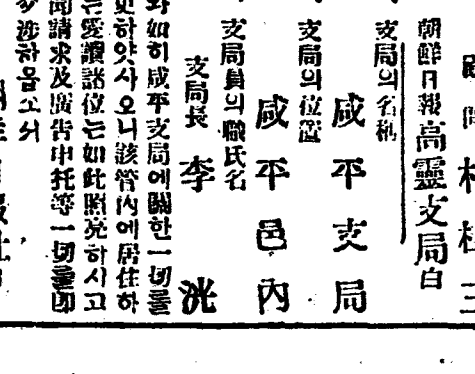 朝鮮日報高靈支局白
支局의名稱
咸平支局
支局의位置
咸平邑內
支局員의職氏名
支局長 李 洸
如히咸平支局에關한一切를
하얏사오니該管內에居住하
는愛讀諸位는如此照亮하시고
聞請求及廣告申托等一切를卽
涉하옵소셔